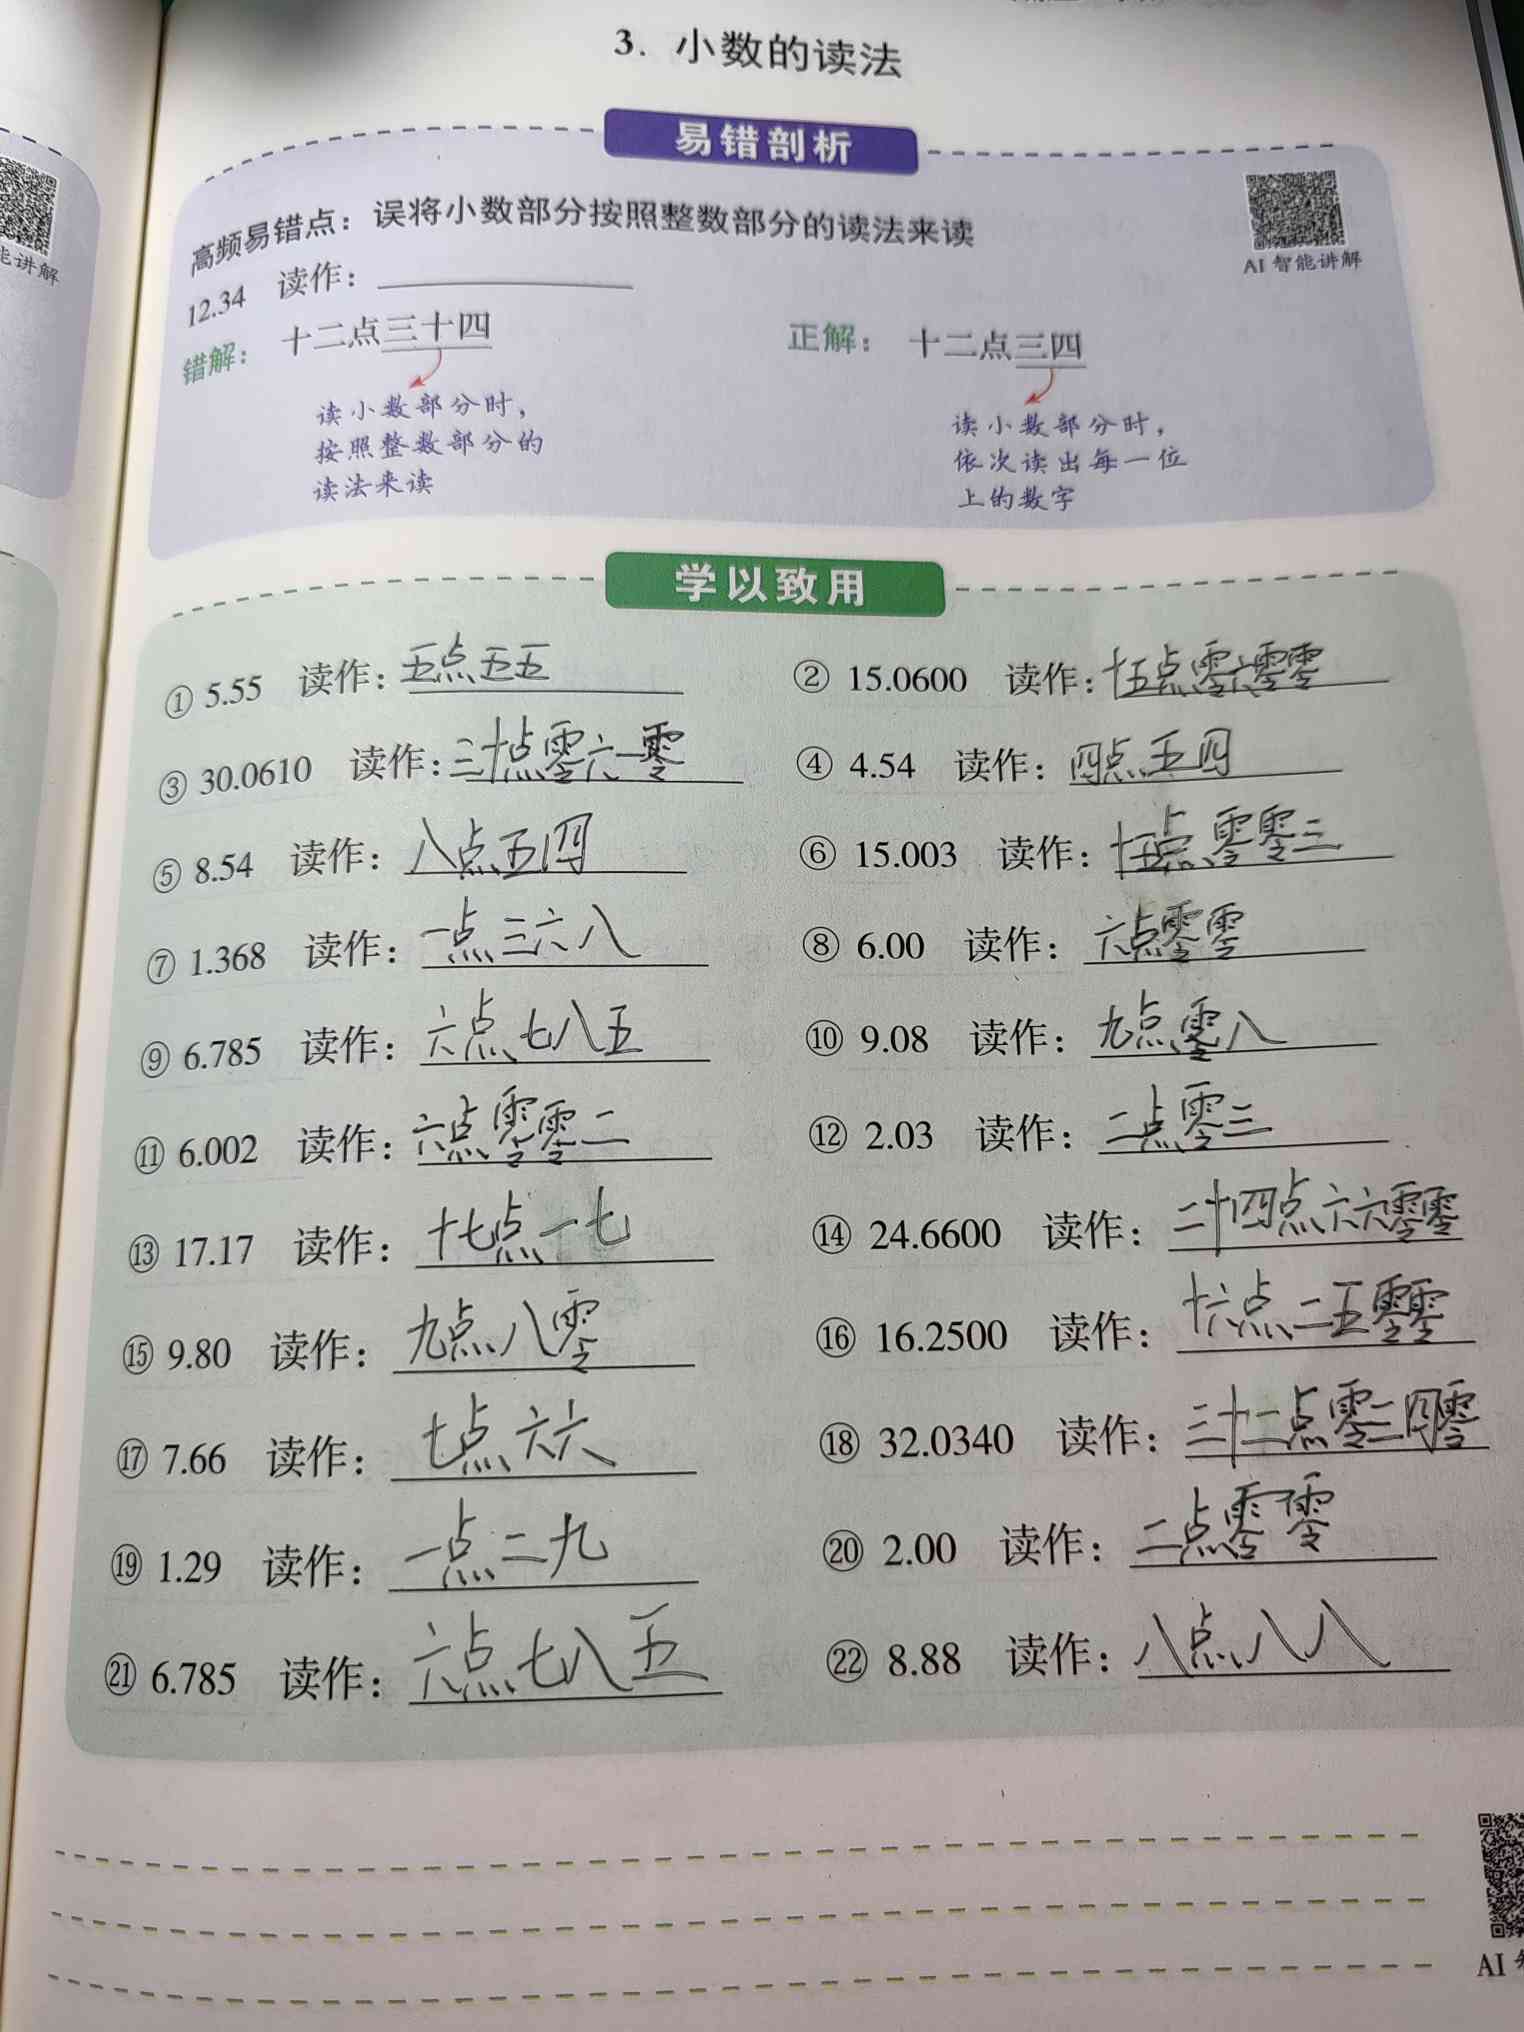 3. 小数的读法
易错剖析
高频易错点：误将小数部分按照整数部分的读法来读
AI 智能讲解
能讲解
12.34 读作：
错解： 十二点三十四
正解： 十二点三四
读小数部分时，
按照整数部分的
读法来读
读小数部分时，
依次读出每一位
上的数字
学以致用
① 5.55 读作：五点五五
② 15.0600 读作：十五点零六零零
③ 30.0610 读作：三十点零六一零
④ 4.54 读作：四点五四
⑤ 8.54 读作：八点五四
⑥ 15.003 读作：十五点零零三
⑦ 1.368 读作：一点三六八
⑧ 6.00 读作：六点零零
⑨ 6.785 读作：六点七八五
⑩ 9.08 读作：九点零八
⑪ 6.002 读作：六点零零二
⑫ 2.03 读作：二点零三
⑬ 17.17 读作：十七点一七
⑭ 24.6600 读作：二十四点六六零零
⑮ 9.80 读作：九点八零
⑯ 16.2500 读作：十六点二五零零
⑰ 7.66 读作：七点六六
⑱ 32.0340 读作：三十二点零三四零
⑲ 1.29 读作：一点二九
⑳ 2.00 读作：二点零零
㉑ 6.785 读作：六点七八五
㉒ 8.88 读作：八点八八
AI